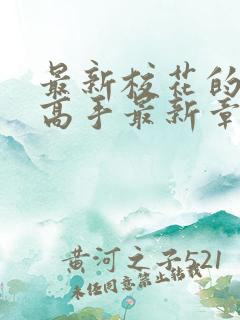 最新校花的
高手最新章
黄河之子521
未经同意禁止转载